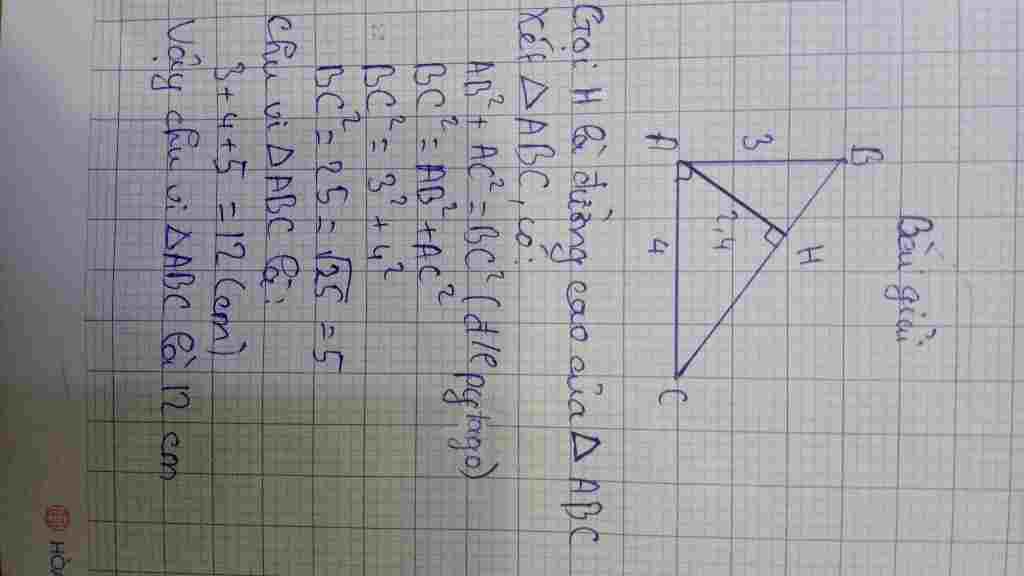 Bài giải
B
3
H
2,4
A
4
C
Gọi H là đường cao của △ABC
Xét △ABC, có:
AB² + AC² = BC² (đ/l pytago)
BC² = AB² + AC²
BC² = 3² + 4²
BC² = 25 = √25 = 5
Chu vi △ABC là:
3 + 4 + 5 = 12 (cm)
Vậy chu vi △ABC là 12 cm